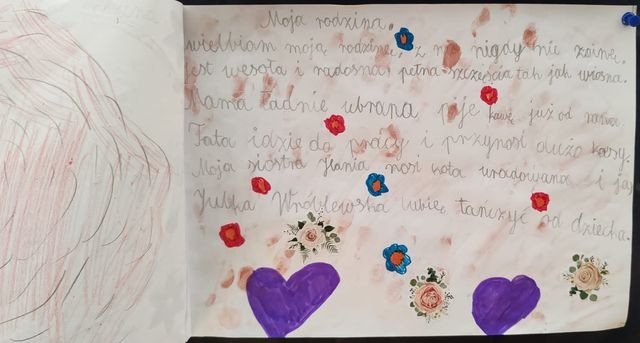 Moja rodzina.
wielbiam moją rodzinę, z nią nigdy nie zginę.
jest wesoła i radosna, pełna szczęścia tak jak wiosna.
Mama ładnie ubrana pije kawę już od rana
Tata idzie do pracy i przynosi dużo kasy.
Moja siostra Hania nosi kota uradowana i ja
Julka Wróblewska lubię tańczyć od dziecka.